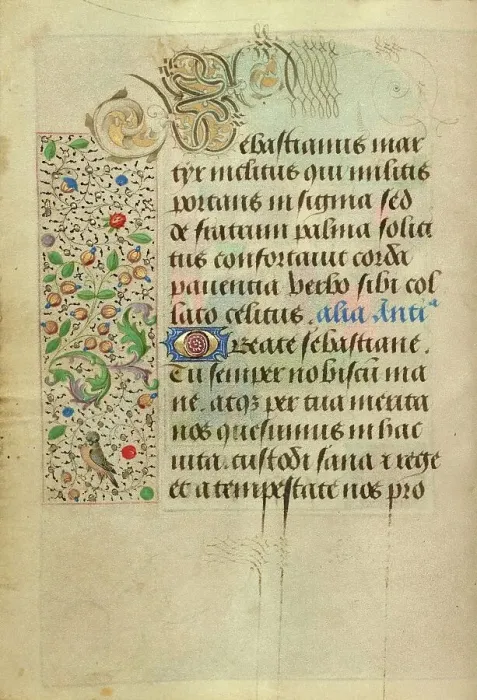 Sebastianus mar
tyr inclitus qui militis
portans insignia sed
de fratrum palma solici
tus confortauit corda
pauentia verbo sibi col
lato celitus. alia Anti^a
O Beate sebastiane.
Tu semper nobiscū ma
ne. atqꝫ per tua merita
nos quesumus in hac
uita. custodi sana ⁊ rege
et a tempestate nos pro